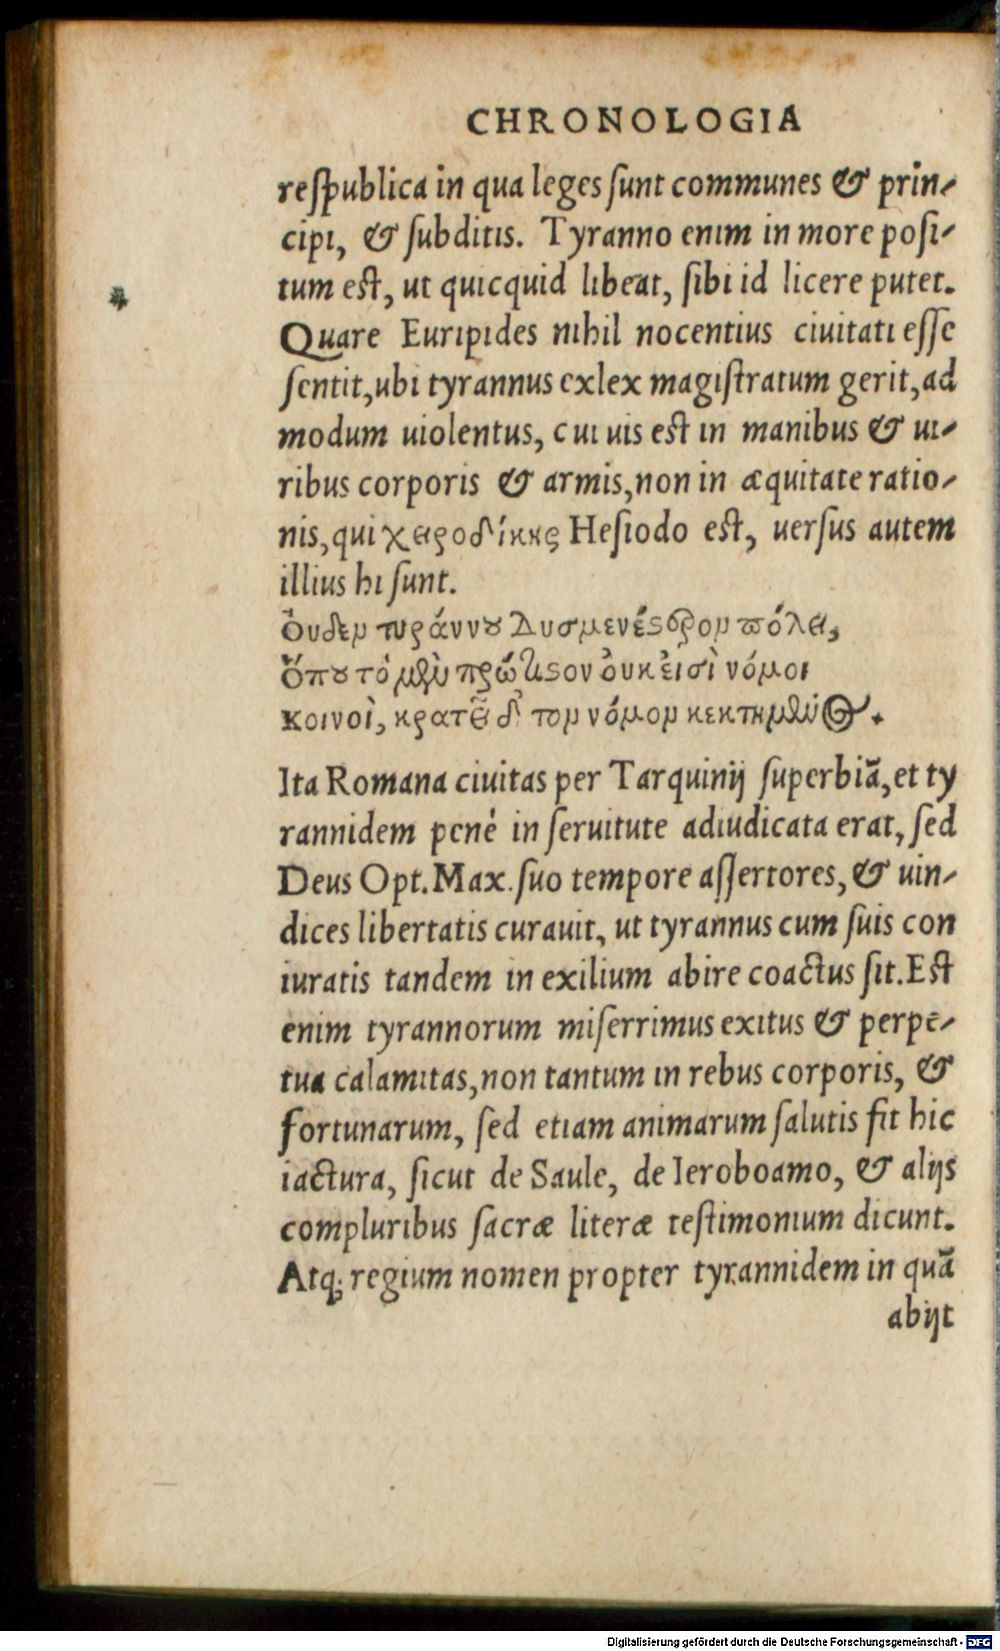 CHRONOLOGIA
reſpublica in qua leges ſunt communes & prin-
cipi, & ſubditis. Tyranno enim in more poſi-
tum est, ut quicquid libeat, ſibi id licere putet.
Quare Euripides nihil nocentius ciuitati eſſe
ſentit, ubi tyrannus exlex magiſtratum gerit, ad
modum uiolentus, cui uis est in manibus & ui-
ribus corporis & armis, non in æquitate ratio-
nis, qui χειροδίκης Heſiodo est, uerſus autem
illius hi ſunt.
Ὀυδεν τυράννου Δυσμενέςερον πόλει,
Ὅπου τὸ μὲν πρώτιςον ὀυκ ἐισὶ νόμοι
Κοινοὶ, κρατεῖ δ' τον νόμον κεκτημένος.
Ita Romana ciuitas per Tarquinij ſuperbiā, et ty
rannidem penè in ſeruitute adiudicata erat, ſed
Deus Opt. Max. ſuo tempore aſſertores, & uin-
dices libertatis curauit, ut tyrannus cum ſuis con
iuratis tandem in exilium abire coactus ſit. Est
enim tyrannorum miſerrimus exitus & perpe-
tua calamitas, non tantum in rebus corporis, &
fortunarum, ſed etiam animarum ſalutis fit hic
iactura, ſicut de Saule, de Ieroboamo, & alijs
compluribus ſacræ literæ teſtimonium dicunt.
Atq; regium nomen propter tyrannidem in quā
abijt
Digitalisierung gefördert durch die Deutsche Forschungsgemeinschaft - DFG